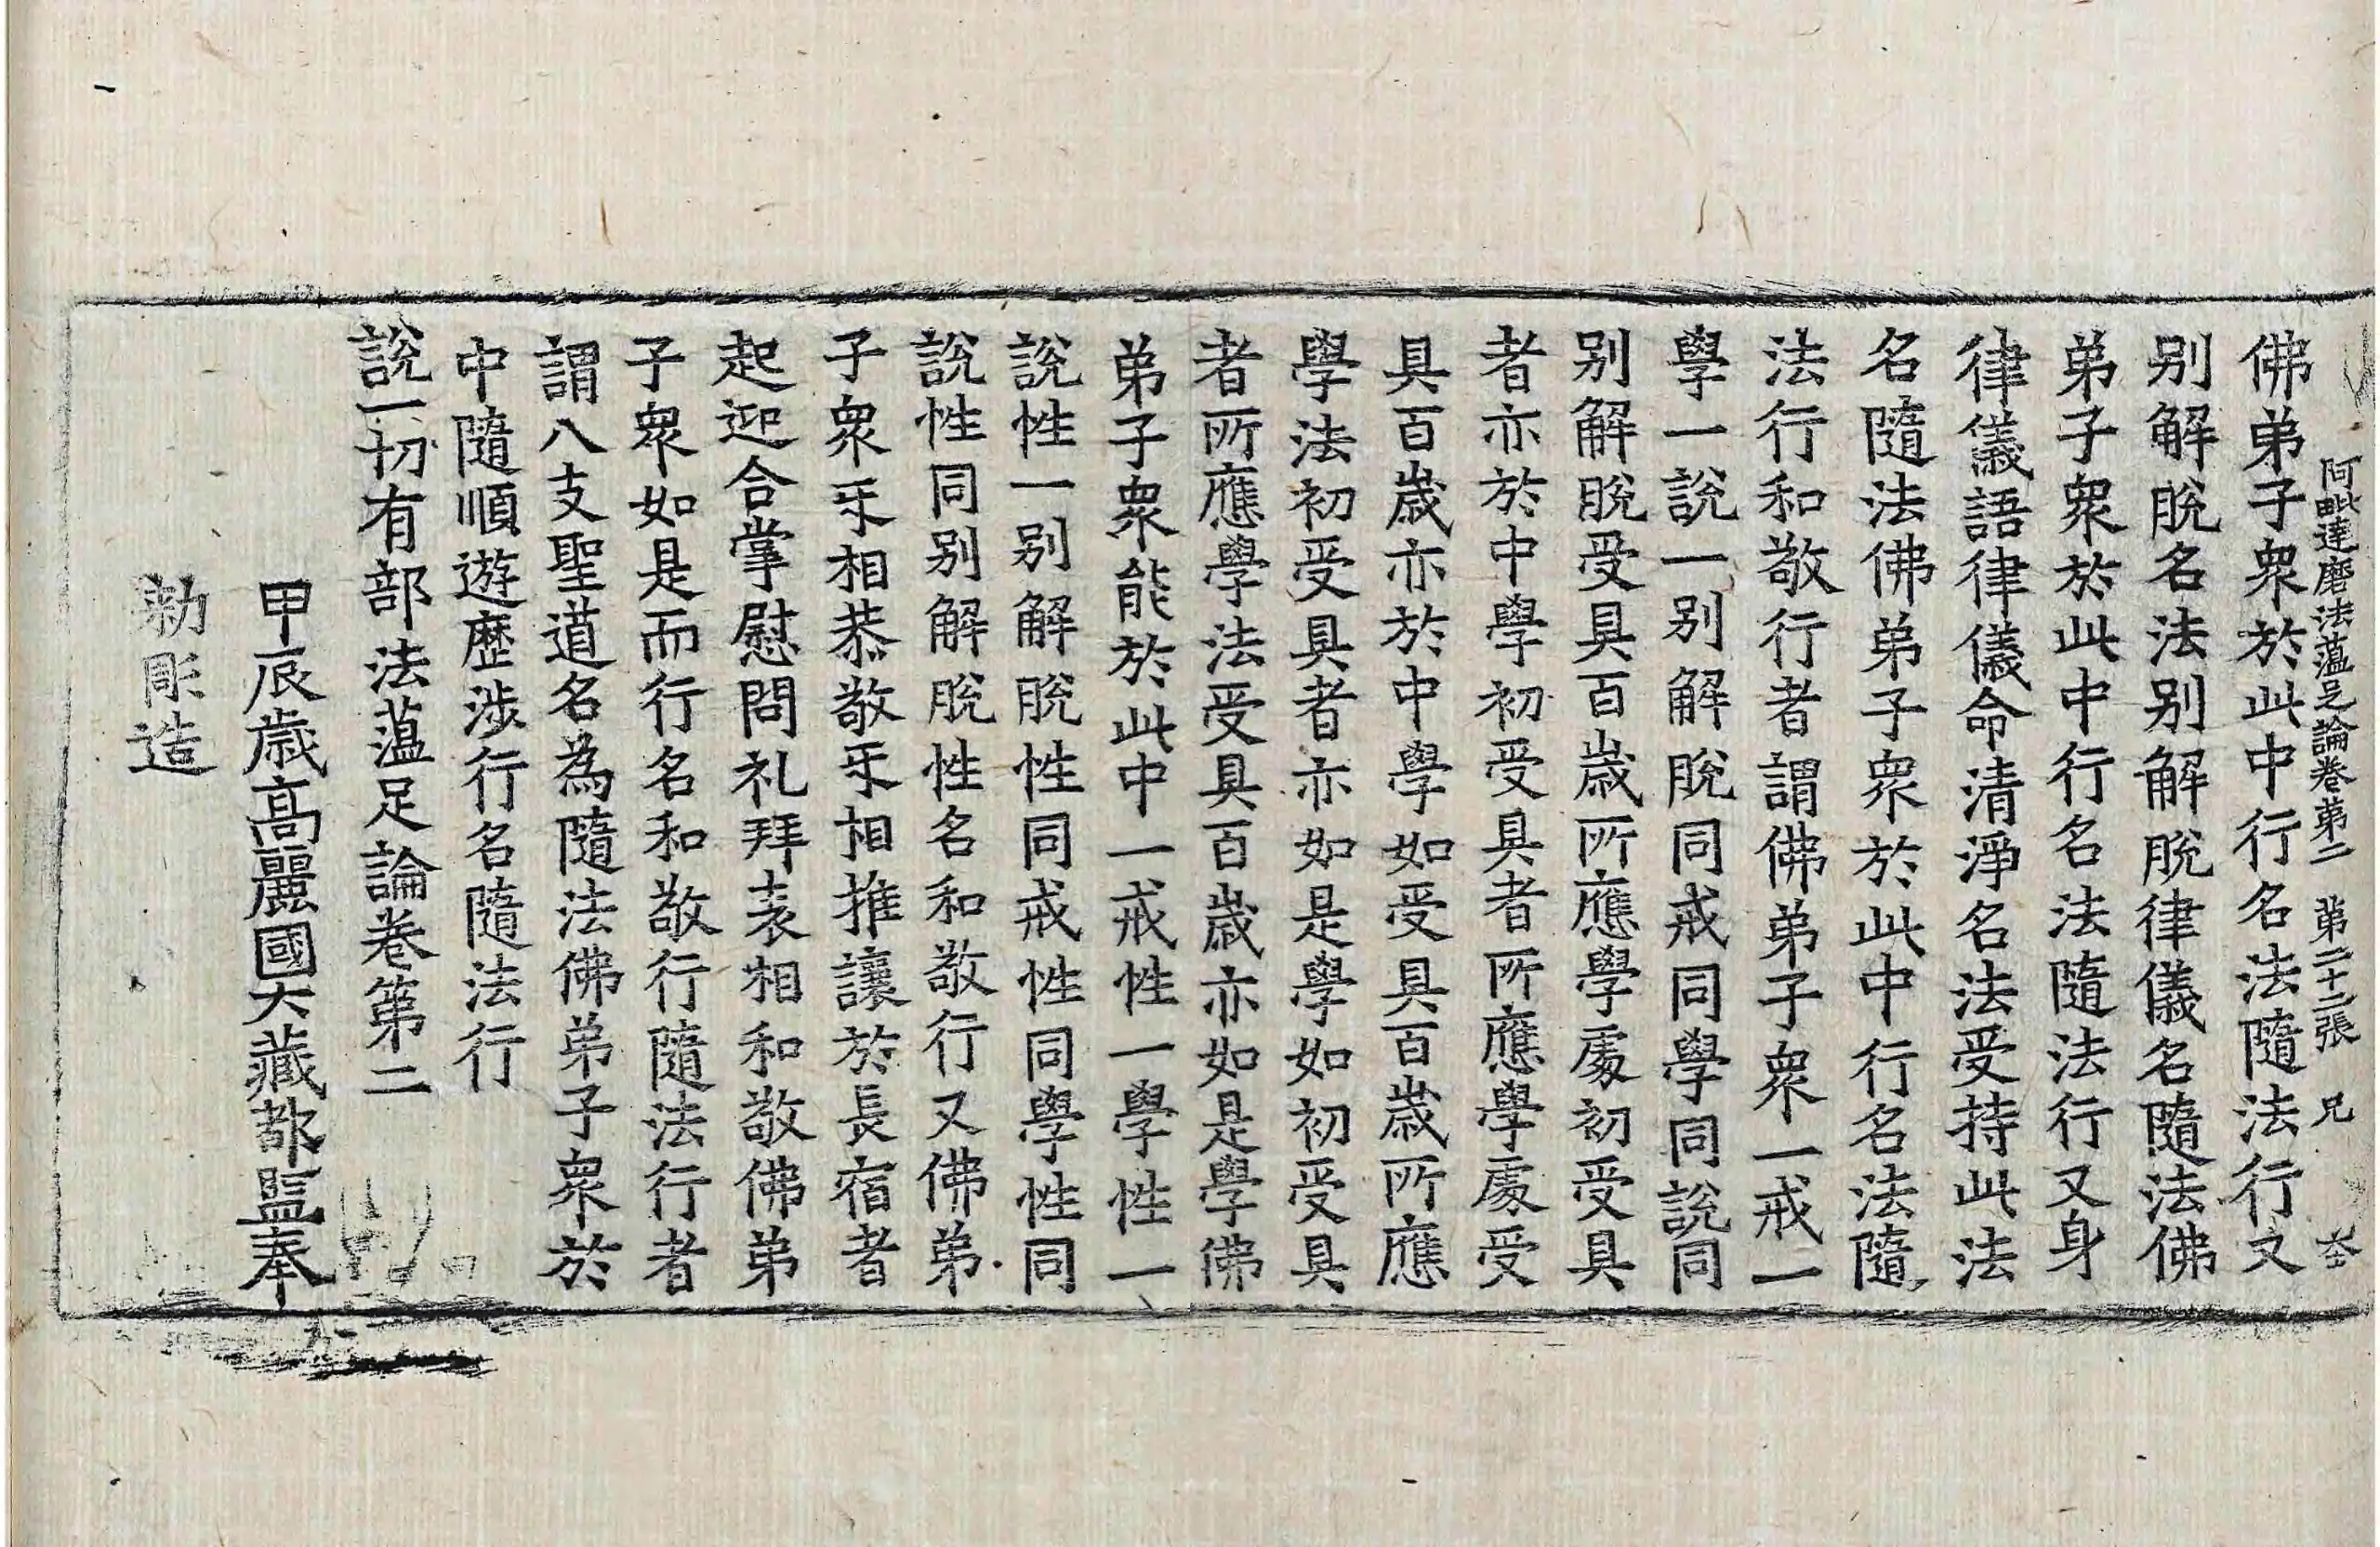 阿毗達磨法蘊足論卷第二 第二十二張 兄
佛弟子衆於此中行名法隨法行又
别解脫名法别解脫律儀名隨法佛
弟子衆於此中行名法隨法行又身
律儀語律儀命清淨名法受持此法
名隨法佛弟子衆於此中行名法隨
法行和敬行者謂佛弟子衆一戒一
學一說一别解脫同戒同學同說同
别解脫受具百歲所應學處初受具
者亦於中學初受具者所應學處受
具百歲亦於中學如受具百歲所應
學法初受具者亦如是學如初受具
者所應學法受具百歲亦如是學佛
弟子衆能於此中一戒性一學性一
說性一别解脫性同戒性同學性同
說性同别解脫性名和敬行又佛弟
子衆㸦相恭敬㸦相推讓於長宿者
起迎合掌慰問礼拜表相和敬佛弟
子衆如是而行名和敬行隨法行者
謂八支聖道名為隨法佛弟子衆於
中隨順遊歷涉行名隨法行
說一切有部法蘊足論卷第二
甲辰歲高麗國大藏都監奉
勅彫造